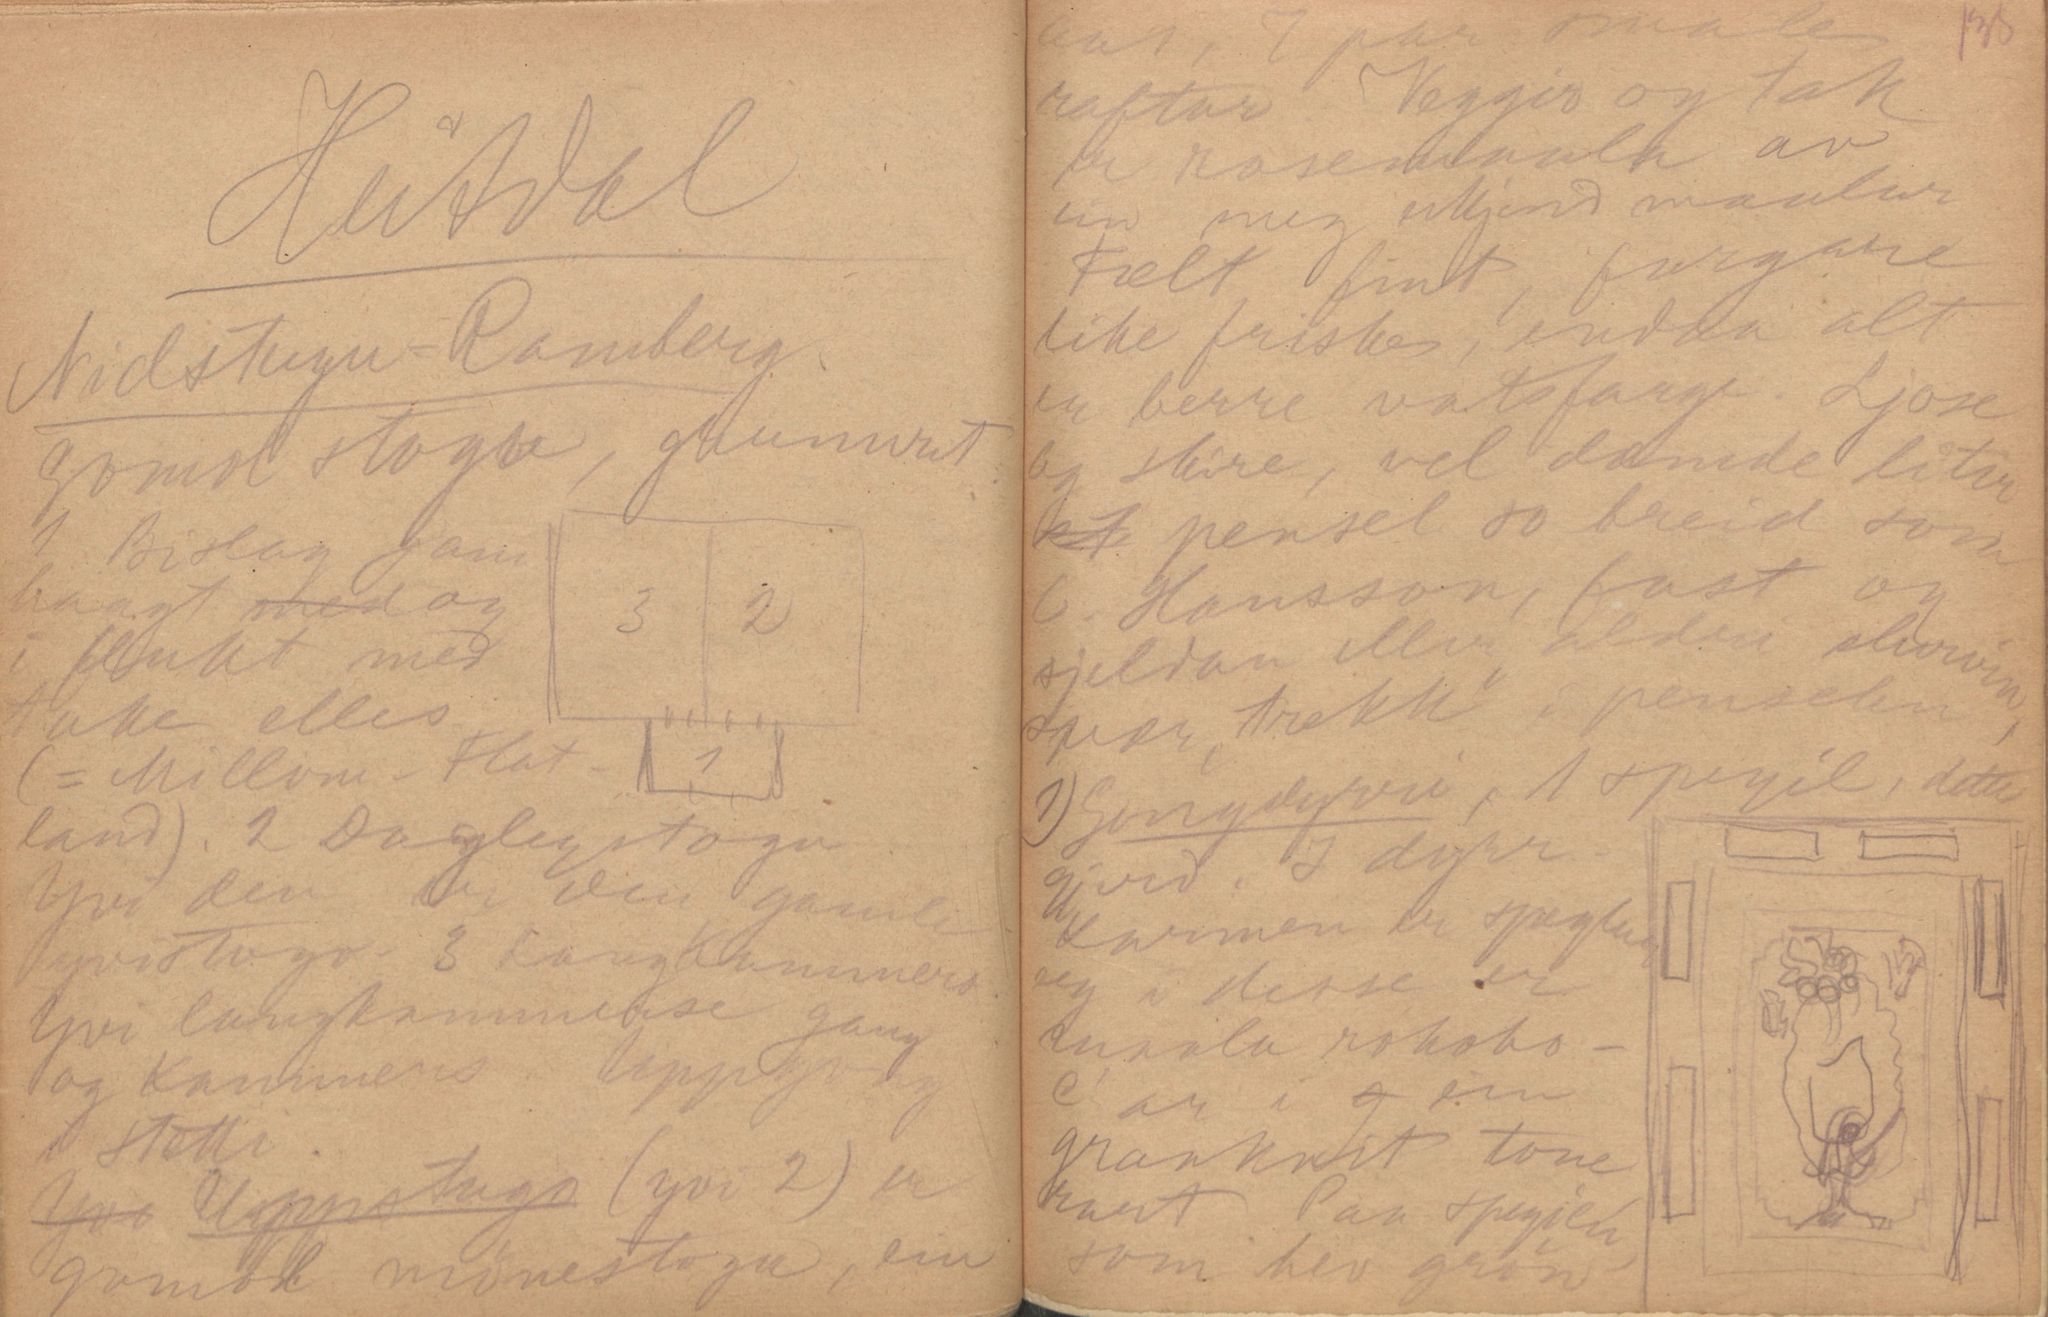 Heitdal
Nidstugu-Ramberg.
gomol stogu, grunnrit
1 Bislag jam
haagt med og
i flukt med
take elles
(= Millom-Flat-
land). 2 Daglegstogu
Yvi den er den gamle
yvistogo. 3 Langkammers
Yvi langkammerse gang
og kammers. Uppgong
i stokk.
Yvi Uppstugo (yvi 2) er
gomol mönestogu, ein
aas, 7 par smale
raftar Veggir og tak
er rosemaala av
ein meg ukjend maalar
Fælt fint, fargane
like friske, endaa alt
er berre vatsfarge. Ljose
og skire, vel damde liter
pensel so breid som
O. Hansson, fast og
sjeldan eller aldri
"trekk" i penselen
1) Gongdyrri, 1 spegil, dette
I dyr-
karmen er speglar
og i desse er
maala rokoko-
C'ar i ein
graakvit tone
Paa spegilen
som hev grön
138
3 2
1